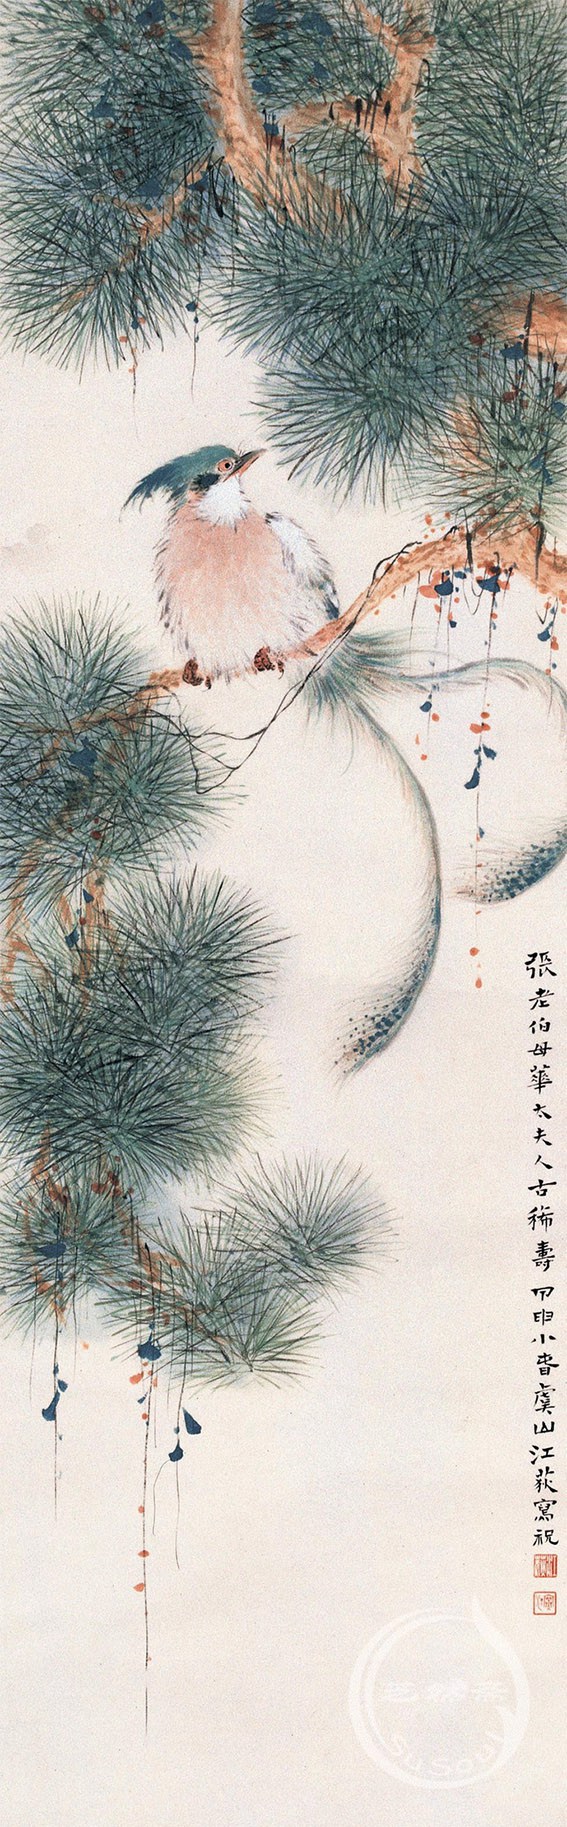 張老伯母華太夫人古稀壽 甲申小春虞山江荻寫祝
SuSoul